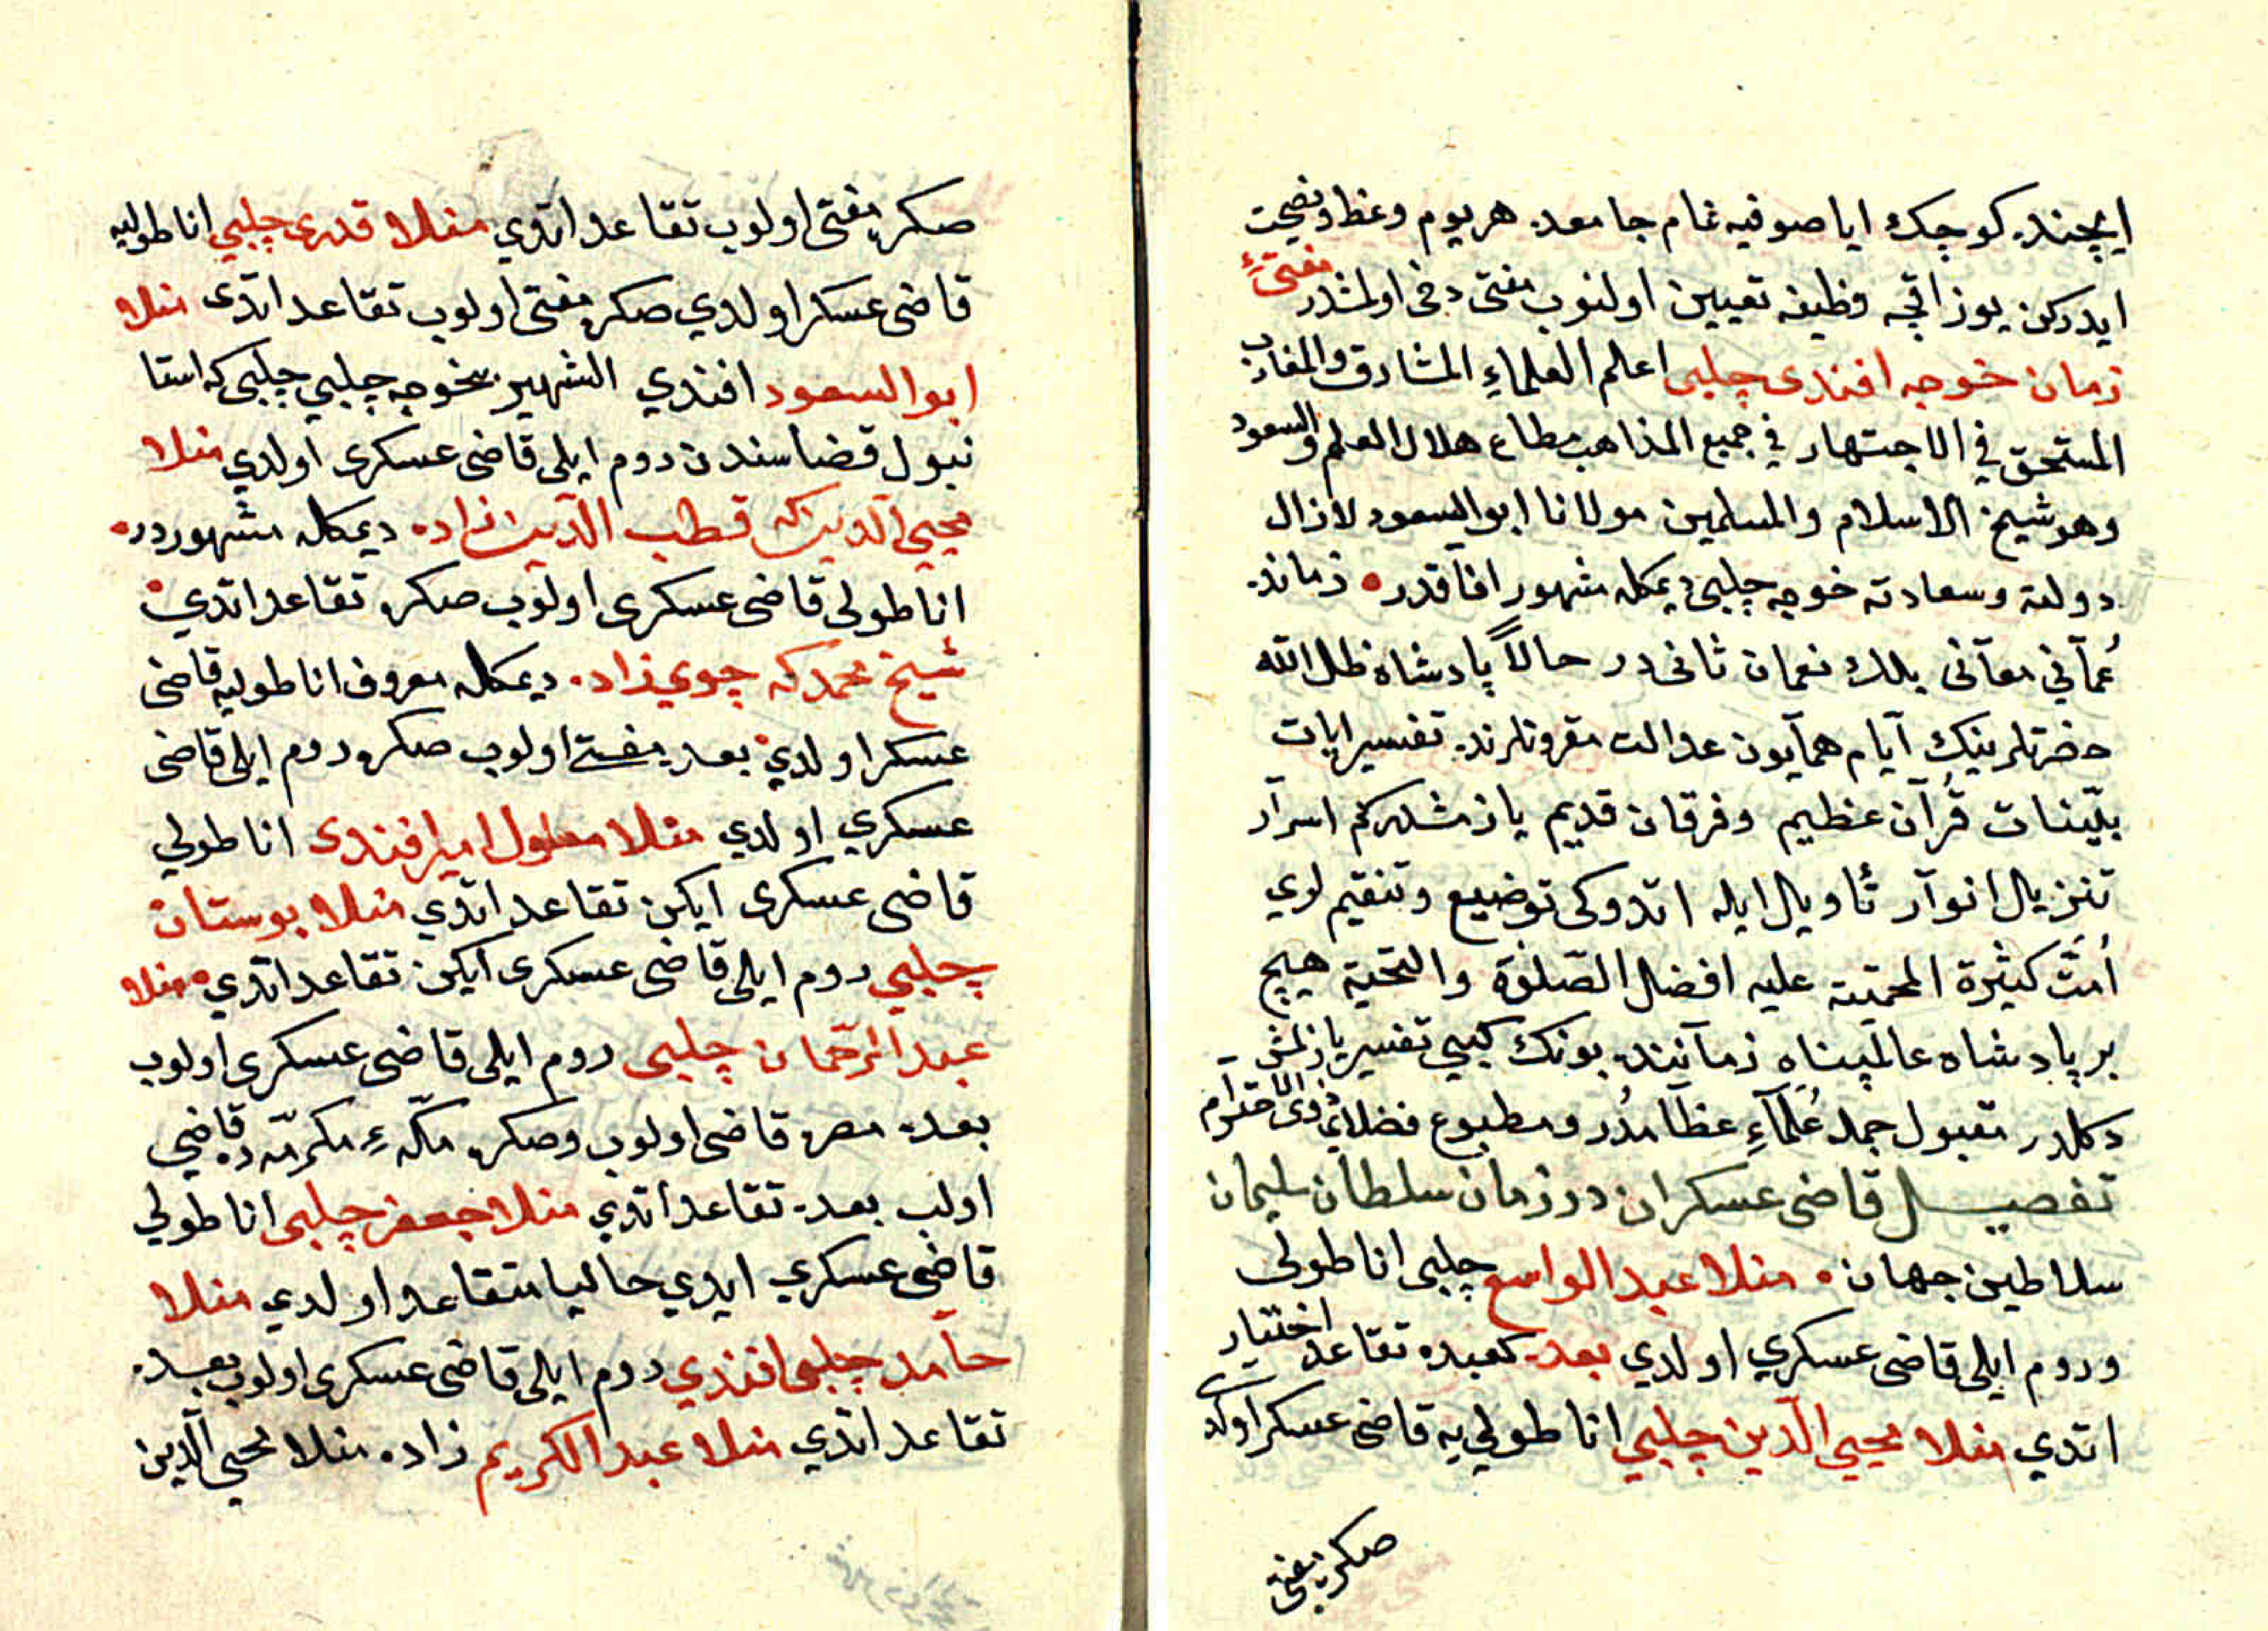 ایچنده کوچک ایاصوفیه نام جامعده هر یوم وعظ و نصیحت
ایدرکن یوز اقچه وظیفه تعیین اولنوب مفتی دخی اولمشدر مفتئ
زمان خوجه افندی چلبی اعلم العلماءِ المشارق والمغارب
المستحق فی الاجتهار فی جمیع المذاهب مطاع هلال العلم والسعود
وهو شیخ الاسلام والمسلمین مولانا ابو السعود لا زال
دولته وسعادته خوجه چلبی دیمکله مشهور افاقدر زمانده
نعمان ثانیدر حالاً پادشاه ظل الله
حضرتلرینک آیام همآیون عدالت مقرونلرنده تفسیر ایات
بیّنات قرآن عظیم وفرقان قدیم یازمشلرکم اسرآر
تنزیل انوآر تأویل ایله اتدوکی توضیع وتنقیم لوي
اُمّت کثیرة المحمّیته علیه افضل الصّلوة والتحیة هیچ
بر پادشاه عالمپناه زمآننده بونک کیبي تفسیر یازلمش
دکلدر مقبول جمله عُلمآءِ عظآمدُر ومطبوع فضلاءِ ذوی الاحتوآم
تفصیل قاضی عسکران در زمان سلطان سلیمان
سلاطین جهان منلا عبد الواسع چلبی اناطولی
وروم ایلی قاضی عسکري اولدي بعده کعبده تقاعد اختیار
اتدي منلا محیي الّدین چلبي اناطولي یه قاضی عسکر اولدي
صکره مفتی
صکره مفتی اولوب تقاعد اتدي منلا قدری چلبي اناطولیه
قاضی عسکر اولدي صکره مفتی اولوب تقاعد اتدی منلا
ابو السعود افندي الشهیر بخوجه چلبي چلبی که استا
نبول قضاسندن روم ایلی قاضی عسکری اولدي منلا
محیي الّدین که قطب الّدین زاده دیمکله مشهوردر
اناطولی قاضی عسکری اولوب صکره تقاعد اتدي
شیخ محمد که چوي زاده دیمکله معروف اناطولیه قاضی
عسکر اولدي بعده مفتی اولوب صکره روم ایلی قاضی
عسکري اولدي منلا معلول امیر افندی اناطولي
قاضی عسکری ایکن تقاعد اتدي منلا بوستان
چلبي روم ایلی قاضی عسکری ایکن تقاعد اتدي منلا
عبد الرّحمان چلبی روم ایلی قاضی عسکری اولوب
بعده مصره قاضی اولوب وصکره مکّهءِ مکرمّه ده قاضي
اولب بعده تقاعد اتدي منلا جعفر چلبی اناطولي
قاضی عسکري ایدي حالیا متقاعد اولدي منلا
حآمد چلبی افندي روم ایلی قاضی عسکری اولوب بعده
تقاعد اتدي منلا عبد الکریم زاده منلا محیي الّدین